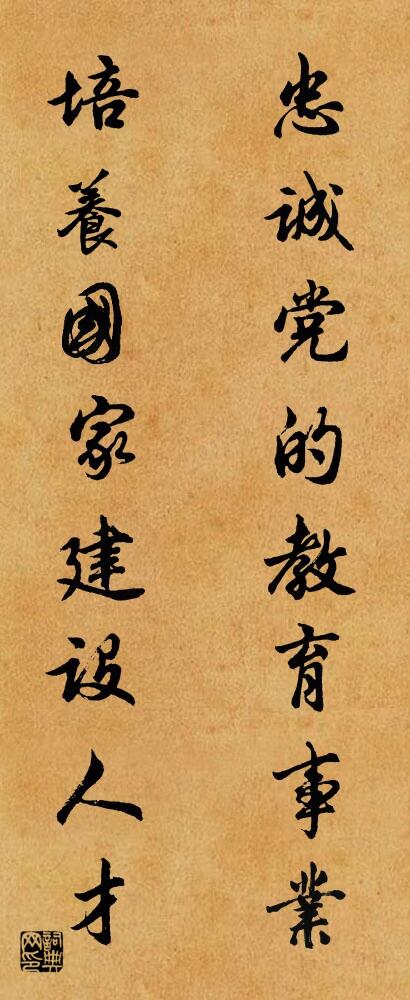 忠诚党的教育事業
培養國家建设人才
詞典
网印